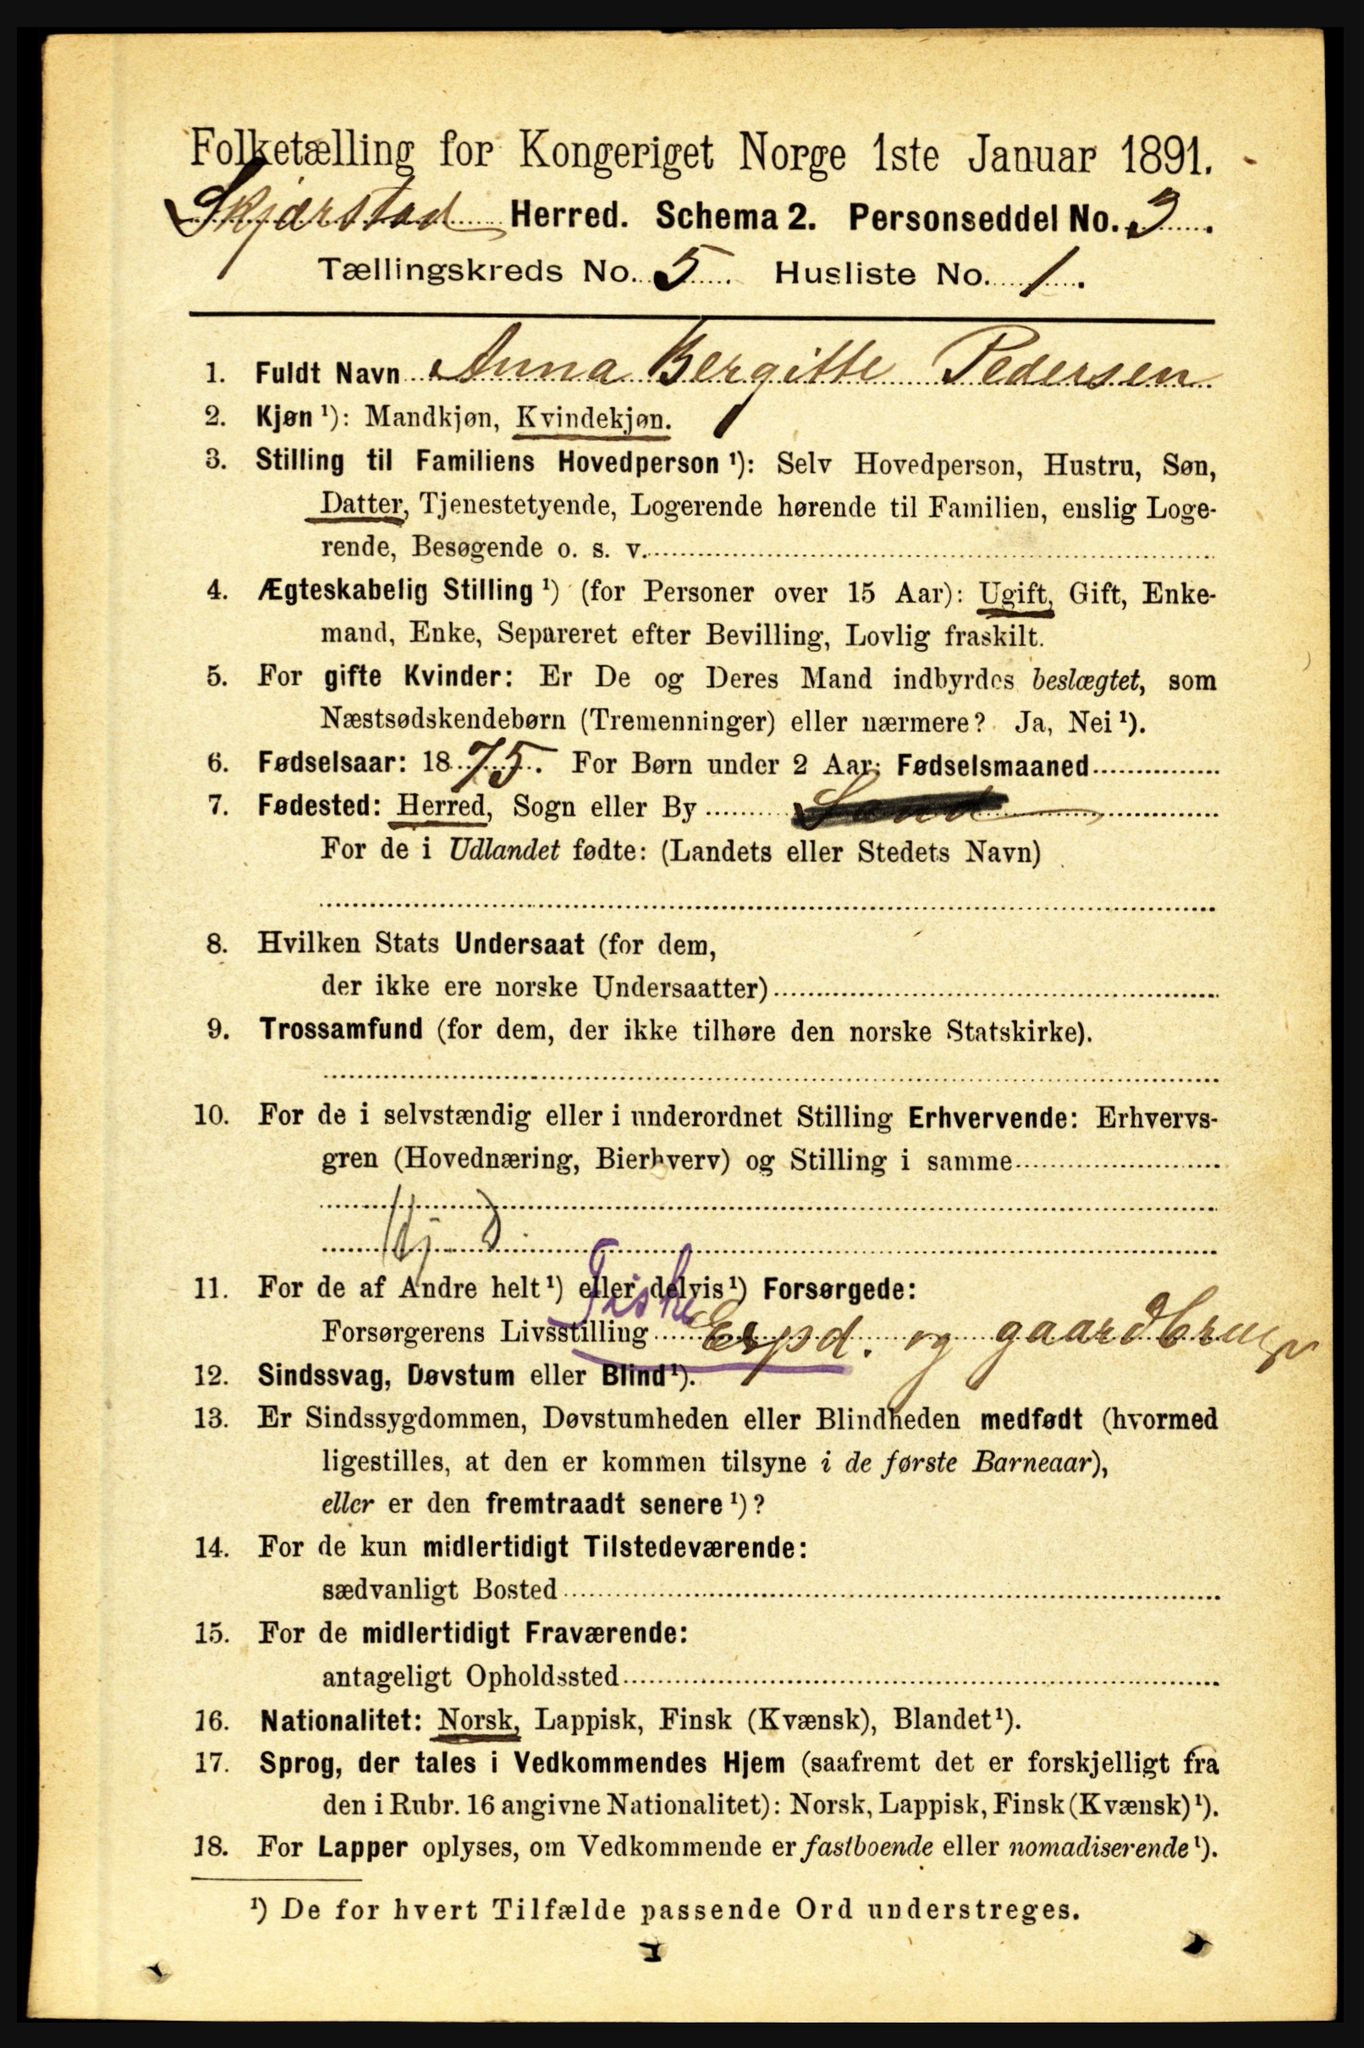 Folketælling for Kongeriget Norge 1ste Januar 1891.
Skjærstad Herred. Schema 2. Personseddel No. 3.
Tællingskreds No. 5. Husliste No. 1.
1. Fuldt Navn Anna Bergitte Pedersen
2. Kjøn ¹): Mandkjøn, Kvindekjøn.
3. Stilling til Familiens Hovedperson ¹): Selv Hovedperson, Hustru, Søn,
Datter, Tjenestetyende, Logerende hørende til Familien, enslig Loge-
rende, Besøgende o. s. v.
4. Ægteskabelig Stilling ¹) (for Personer over 15 Aar): Ugift, Gift, Enke-
mand, Enke, Separeret efter Bevilling, Lovlig fraskilt.
5. For gifte Kvinder: Er De og Deres Mand indbyrdes beslægtet, som
Næstsødskendebørn (Tremenninger) eller nærmere? Ja, Nei ¹).
6. Fødselsaar: 1875. For Børn under 2 Aar: Fødselsmaaned
7. Fødested: Herred, Sogn eller By
For de i Udlandet fødte: (Landets eller Stedets Navn)
8. Hvilken Stats Undersaat (for dem,
der ikke ere norske Undersaatter)
9. Trossamfund (for dem, der ikke tilhøre den norske Statskirke).
10. For de i selvstændig eller i underordnet Stilling Erhvervende: Erhvervs-
gren (Hovednæring, Bierhverv) og Stilling i samme
11. For de af Andre helt ¹) eller delvis ¹) Forsørgede:
Fiske
Forsørgerens Livsstilling Expd. og gaardbruger
12. Sindssvag, Døvstum eller Blind ¹).
13. Er Sindssygdommen, Døvstumheden eller Blindheden medfødt (hvormed
ligestilles, at den er kommen tilsyne i de første Barneaar),
eller er den fremtraadt senere ¹)?
14. For de kun midlertidigt Tilstedeværende:
sædvanligt Bosted
15. For de midlertidigt Fraværende:
antageligt Opholdssted
16. Nationalitet: Norsk, Lappisk, Finsk (Kvænsk), Blandet ¹).
17. Sprog, der tales i Vedkommendes Hjem (saafremt det er forskjelligt fra
den i Rubr. 16 angivne Nationalitet): Norsk, Lappisk, Finsk (Kvænsk) ¹).
18. For Lapper oplyses, om Vedkommende er fastboende eller nomadiserende ¹).
¹) De for hvert Tilfælde passende Ord understreges.